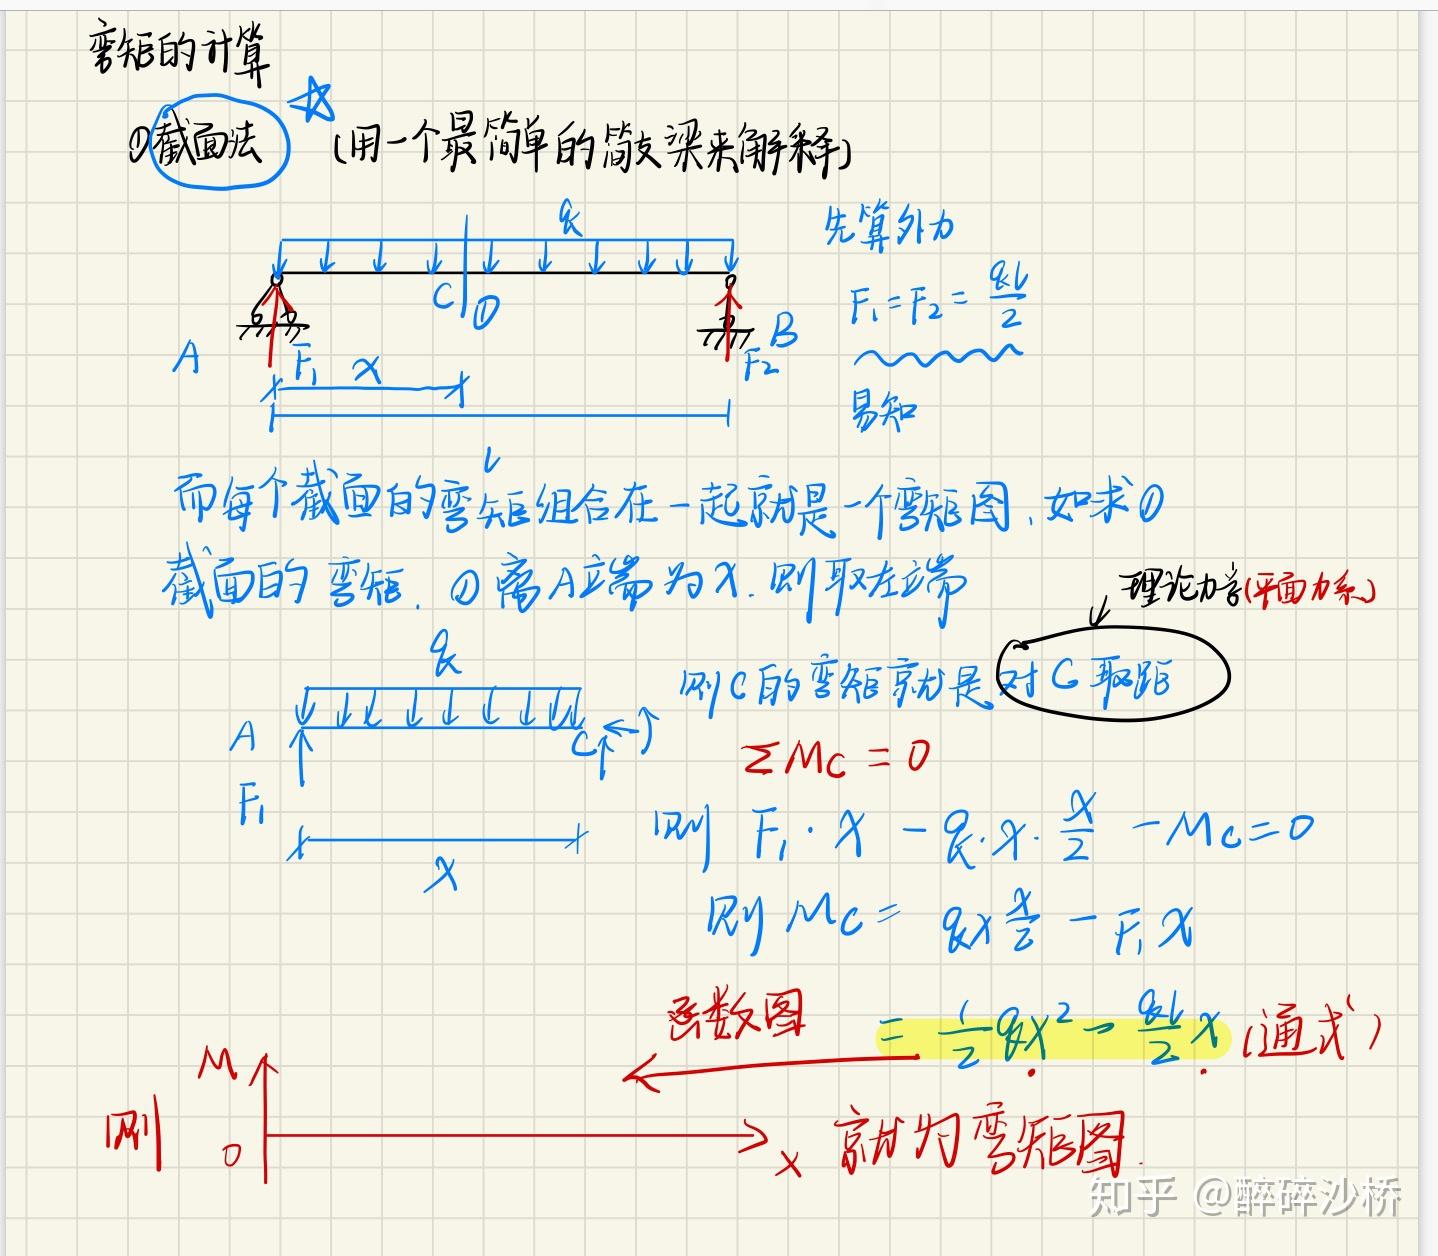 弯矩的计算
①截面法 (用一个最简单的简支梁来解释)
q
先算外力
C ①
F₁=F₂=ql/2
A F₁ x F₂ B
易知
l
而每个截面的弯矩组合在一起就是一个弯矩图、如求①
截面的弯矩、①离A端为x.则取左端
理论力学(平面力系)
q
则C的弯矩就是对C取距
A C
ΣMc=0
F₁
则 F₁·x-q·x·x/2-Mc=0
x
则 Mc=qx x/2-F₁x
函数图
=1/2qx²-ql/2x(通式)
M
则 0 x 就为弯矩图.
知乎 @醉碎沙桥